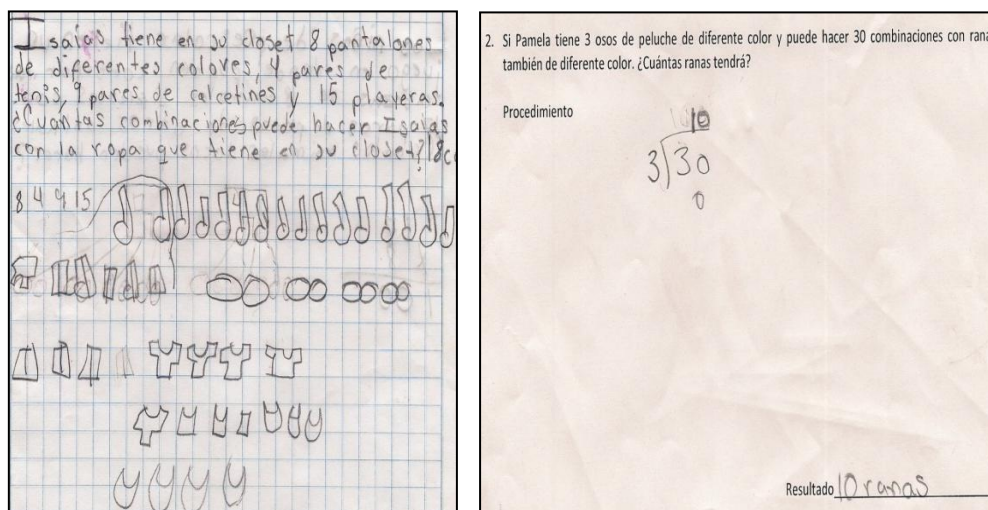 Isaias tiene en su closet 8 pantalones
de diferentes colores, 4 pares de
tenis, 9 pares de calcetines y 15 playeras.
¿Cuantas combinaciones puede hacer Isaias
con la ropa que tiene en su closet? 18c
8 4 9 15
2. Si Pamela tiene 3 osos de peluche de diferente color y puede hacer 30 combinaciones con rana
también de diferente color. ¿Cuántas ranas tendrá?
Procedimiento
10
3 30
0
Resultado 10 ranas